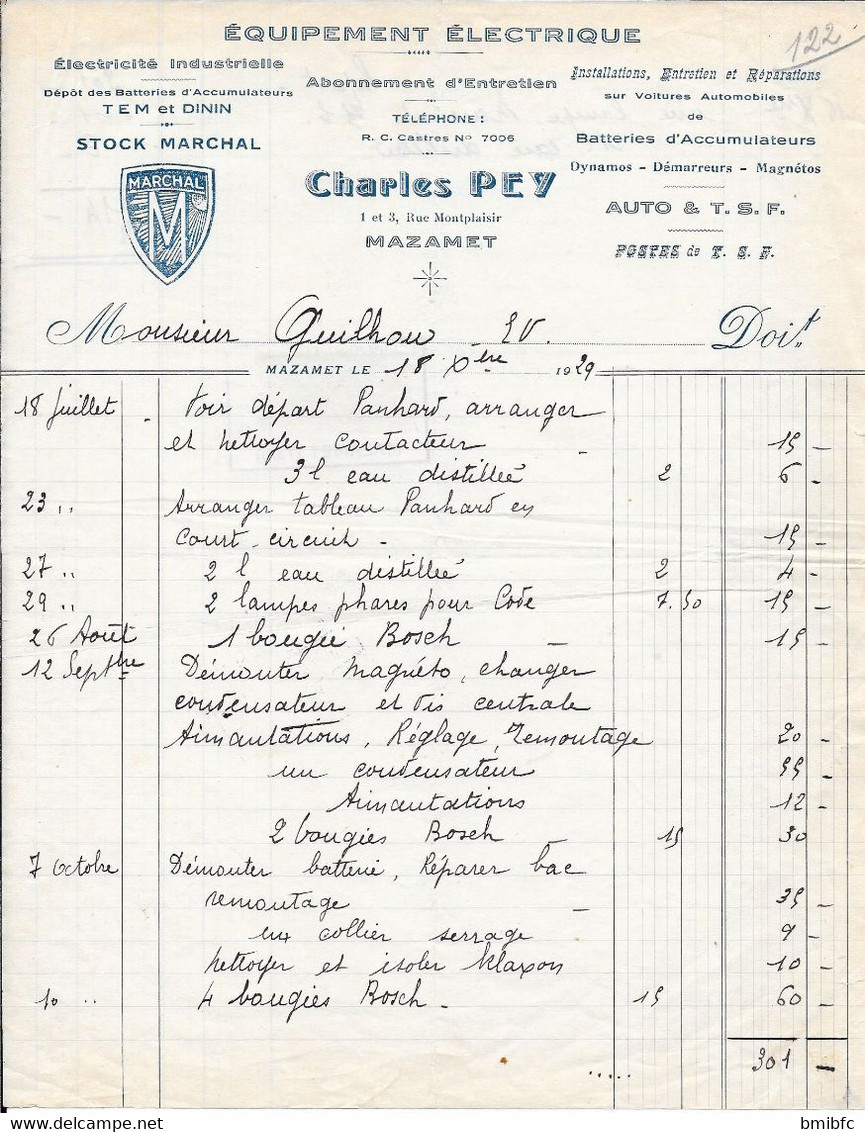 122
ÉQUIPEMENT ÉLECTRIQUE
Électricité Industrielle
Dépôt des Batteries d'Accumulateurs
TEM et DININ
STOCK MARCHAL
MARCHAL
M
Abonnement d'Entretien
TÉLÉPHONE :
R. C. Castres No 7006
Charles PEY
1 et 3, Rue Montplaisir
MAZAMET
Installations, Entretien et Réparations
sur Voitures Automobiles
de
Batteries d'Accumulateurs
Dynamos - Démarreurs - Magnétos
AUTO & T. S. F.
POSTES de T. S. F.
Monsieur Guilhou EV. Doit
MAZAMET LE 18 Xbre 1929
18 Juillet - Voir départ Panhard, arranger
et nettoyer contacteur - 15 -
3 l eau distillée 2 6 -
23 " Arranger tableau Panhard en
court-circuit - 15 -
27 " 2 l eau distillée 2 4 -
29 " 2 lampes phares pour Code 7.50 15 -
26 Août 1 bougie Bosch - 15 -
12 Septbre Démonter magnéto, changer
condensateur et vis centrale
Aimantations, Réglage, remontage 20 -
un condensateur 55 -
Aimantations 12 -
2 bougies Bosch - 15 30
7 Octobre Démonter batterie, Réparer bac
remontage - 35 -
un collier serrage 9 -
nettoyer et isoler klaxon 10 -
10 " 4 bougies Bosch - 15 60 -
..... 301 -
bmibfc